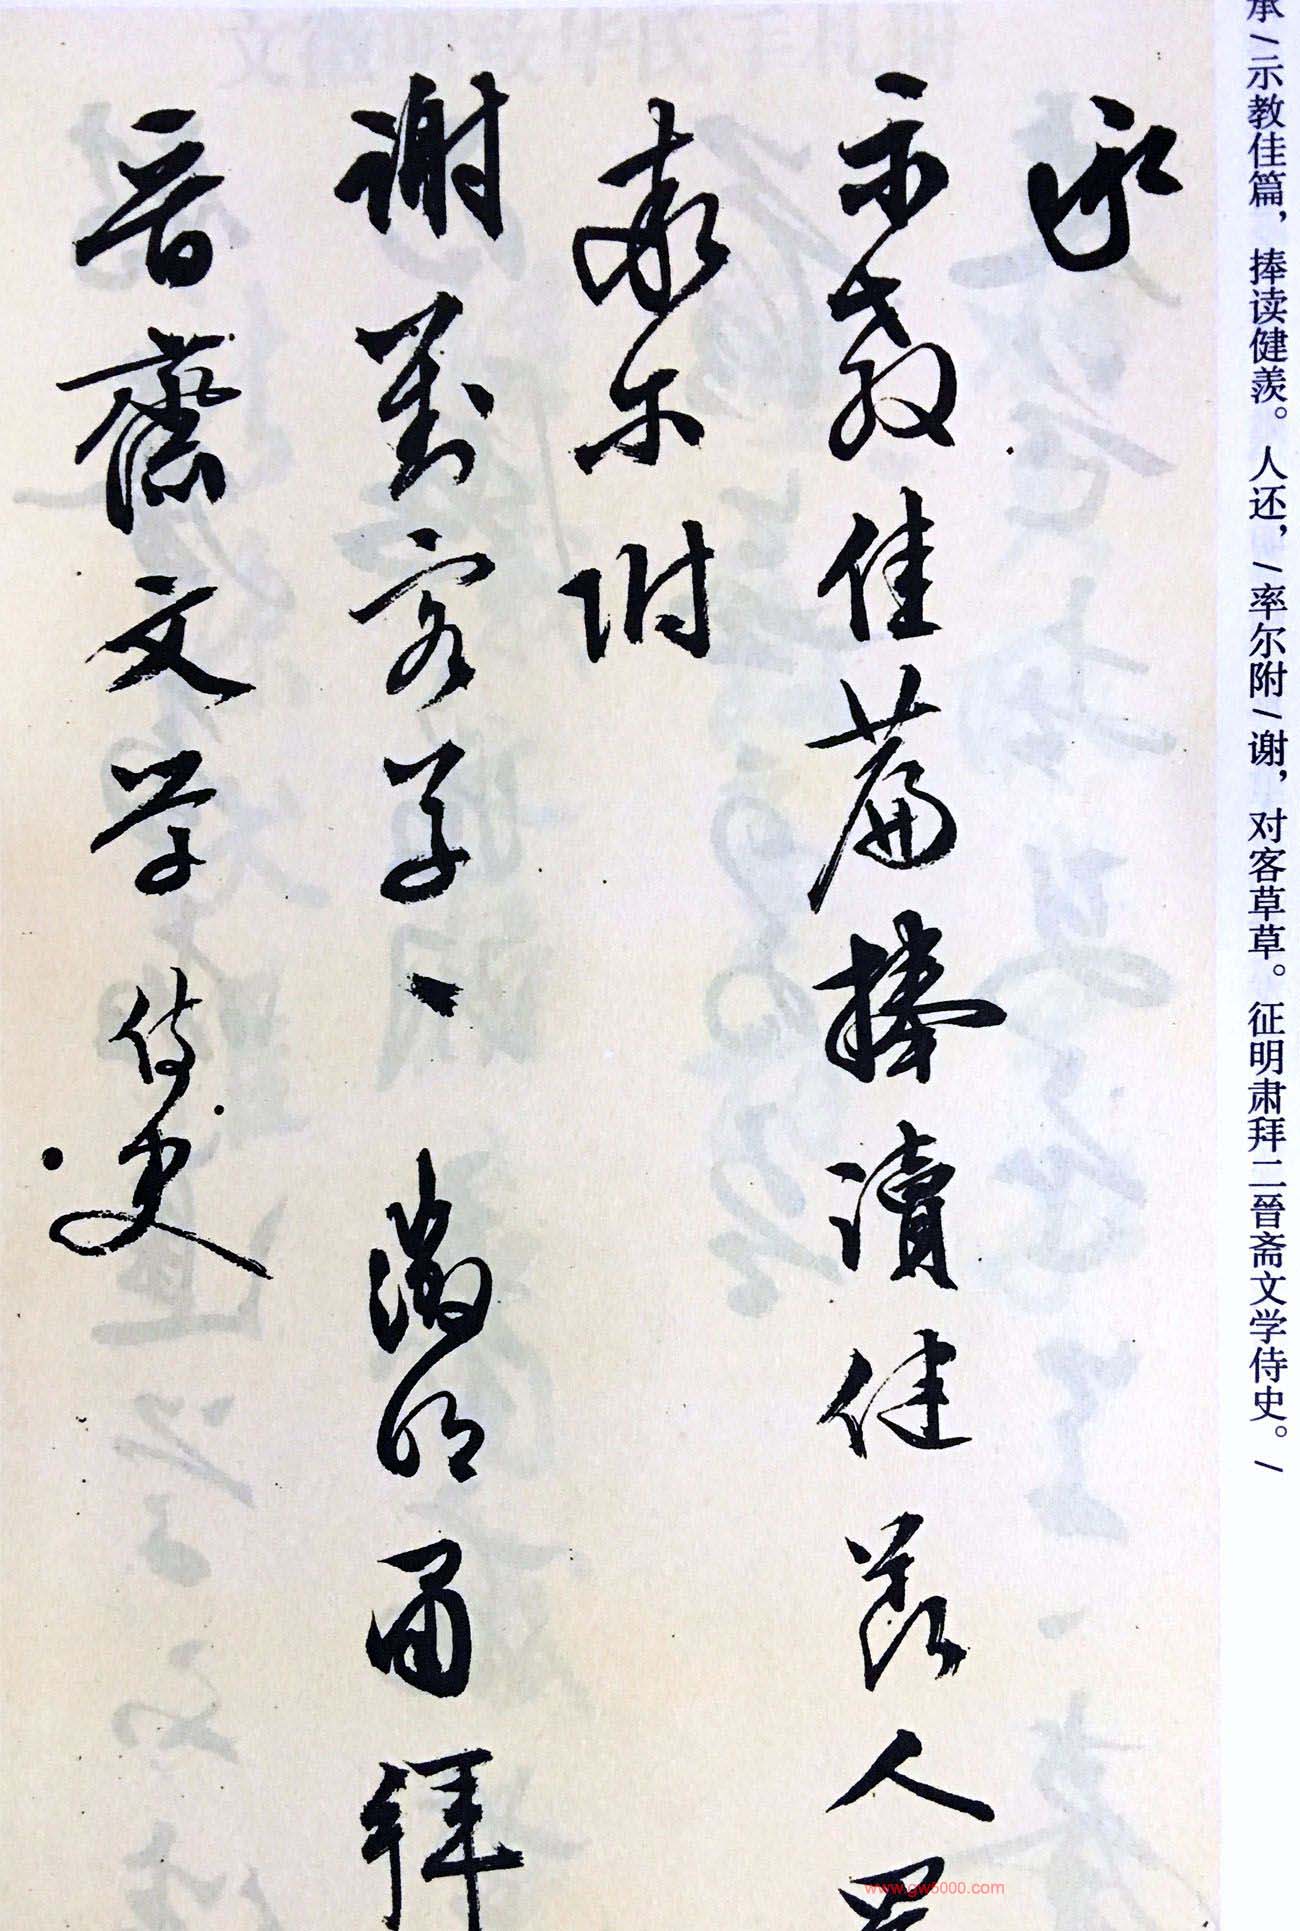 承/示教佳篇，捧读健羡。人还，/率尔附/谢，对客草草。征明肃拜二晉斋文学侍史。/
承
示教佳篇捧讀健羡人
率尔附
謝對客草〻徵明肅拜
晉齋文学侍史
www.gw5000.com